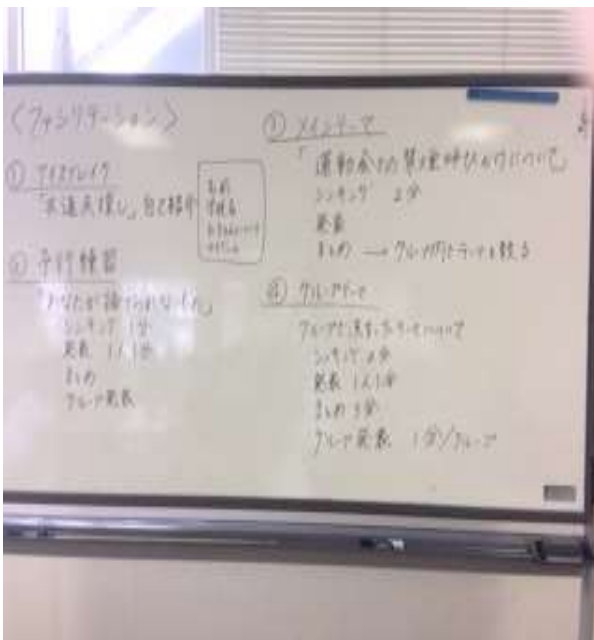 〈ファシリテーション〉
① アイスブレイク
「共通点探し」自己紹介
名前
② 予行練習
「あなたが捨てられないもの」
シンキング 1分
発表 1人1分
まとめ
グループ発表
③ メインテーマ
シンキング 2分
発表
まとめ → グループ内でテーマを絞る
④ グループテーマ
グループで決まったテーマについて
シンキング 2分
発表 1人1分
まとめ 3分
グループ発表 1分/グループ